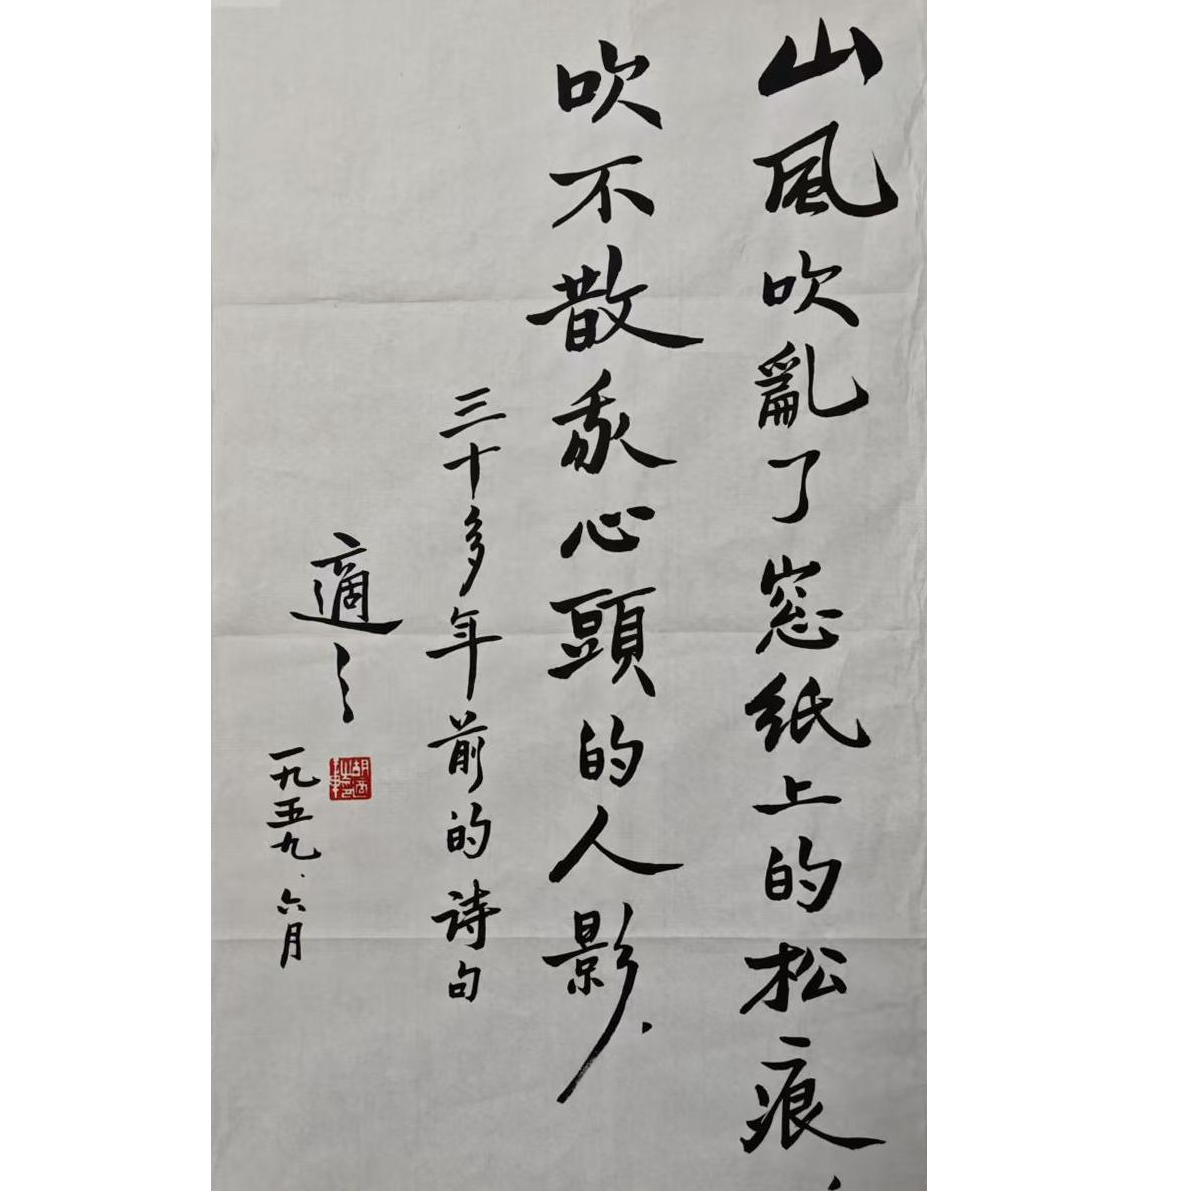 山風吹亂了窓紙上的松痕，
吹不散我心頭的人影．
三十多年前的詩句
適之
一九五九．六月